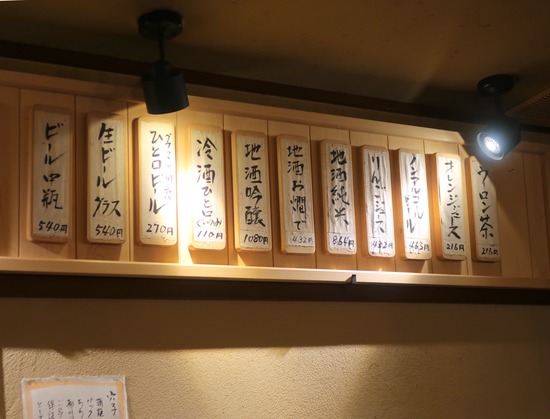 ビール中瓶
540円
生ビール
グラス
540円
ひと口ビール
270円
冷酒ひと口
ぐいのみ
110円
地酒吟醸
1080円
地酒お燗で
432円
地酒純米
864円
りんごジュース
432円
ノンアルコール
ビール
463円
オレンジジュース
216円
ウーロン茶
216円